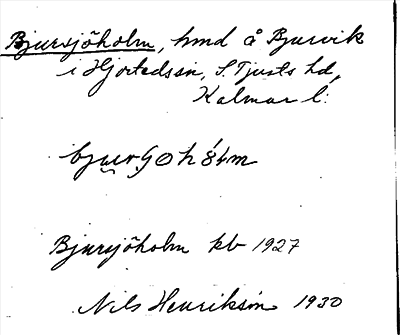 Bjursjöholm, hmd å Bjurvik
i Hjortedssn, S. Tjusts hd,
Kalmar l:
Bjursjöholm kb 1927
Nils Henriksson 1930